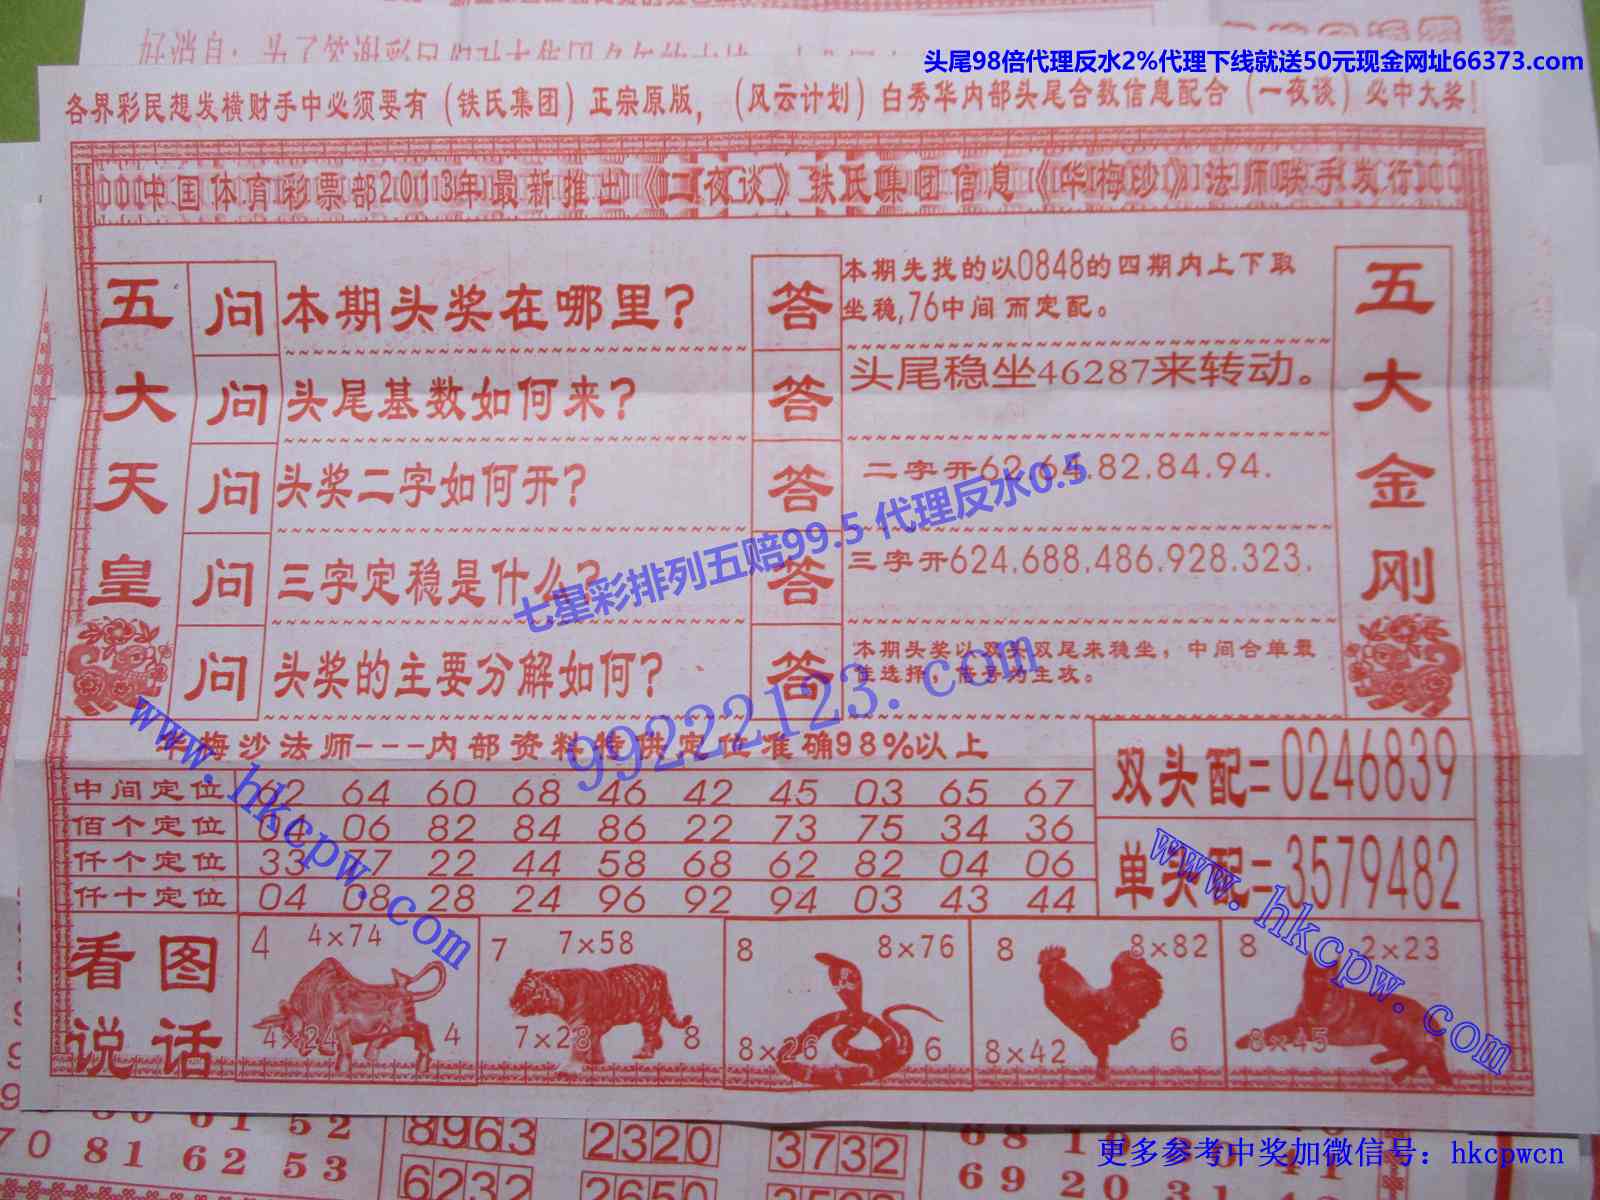 好消息：为了答谢彩民们对本集团多年的支持
头尾98倍代理反水2%代理下线就送50元现金网址66373.com
各界彩民想发横财手中必须要有（铁氏集团）正宗原版，（风云计划）白秀华内部头尾合数信息配合（一夜谈）必中大奖！
中国体育彩票部2013年最新推出《一夜谈》铁氏集团信息《华梅沙》法师联手发行
五大天皇
问 本期头奖在哪里？
答 本期先找的以0848的四期内上下取
坐稳,76中间而定配。
问 头尾基数如何来？
答 头尾稳坐46287来转动。
问 头奖二字如何开？
答 二字开62.64.82.84.94.
问 三字定稳是什么？
答 三字开624.688.486.928.323.
问 头奖的主要分解如何？
答 本期头奖以双头双尾来稳坐，中间合单最
佳选择，落号为主攻。
五大金刚
七星彩排列五赔99.5 代理反水0.5
99222123.com
www.hkcpw.com
www.hkcpw.com
华梅沙法师---内部资料特供定位准确98%以上
中间定位 62 64 60 68 46 42 45 03 65 67
佰个定位 04 06 82 84 86 22 73 75 34 36
仟个定位 33 77 22 44 58 68 62 82 04 06
仟十定位 04 08 28 24 96 92 94 03 43 44
双头配=0246839
单头配=3579482
看图
说话
4 4×74
4×24 4
7 7×58
7×28 8
8 8×76
8×26 6
8 8×82
8×42 6
8 2×23
8×45
80 61 52
70 81 62 53
8963 2320 3732
6232 2650
68 19
69 20 31
更多参考中奖加微信号：hkcpwcn